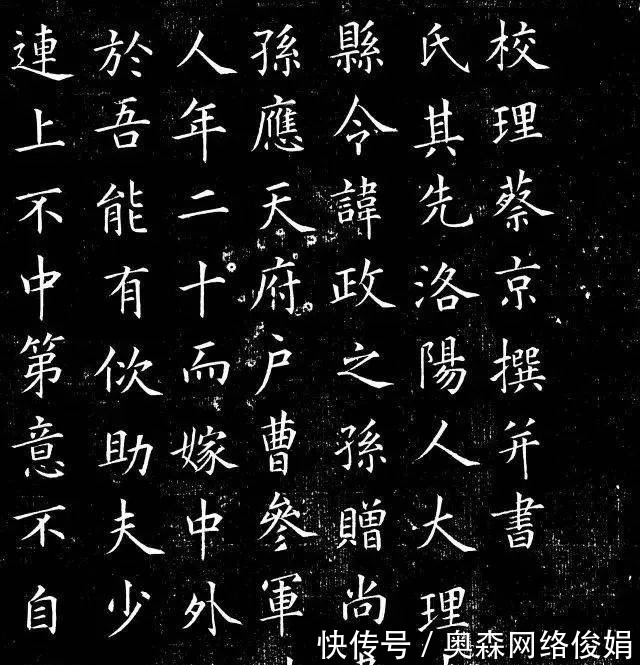 校理蔡京撰并書
氏其先洛陽人大理
縣令諱政之孫贈尚
孫應天府户曹參軍
人年二十而嫁中外
於吾能有佽助夫少
連上不中第意不自
快传号/奥森网络俊娟